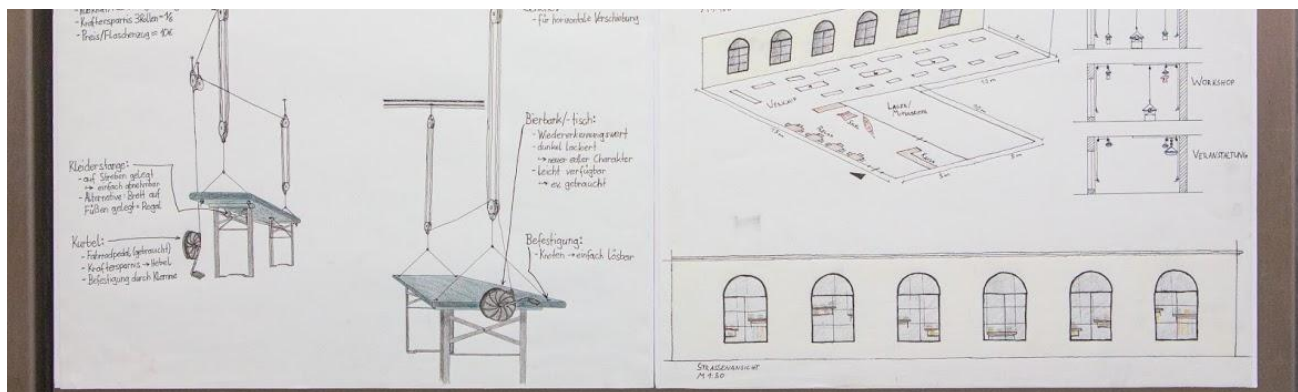 - Kraftersparnis 3Rollen = 1/6
- Preis/Flaschenzug = 10€
- für horizontale Verschiebung
Kleiderstange:
- auf Streben gelegt
→ einfach abnehmbar
- Alternative: Brett auf
Füßen gelegt = Regal
Kurbel:
- Fahrradpedal (gebraucht)
- Kraftersparnis → Hebel
- Befestigung durch Klemme
Bierbank/-tisch:
- Wiedererkennungswert
- dunkel lackiert
→ neuer edler Charakter
- Leicht verfügbar
→ ev. gebraucht
Befestigung:
- Knoten → einfach lösbar
VERKAUF
LAGER/
WORKSHOP
VERANSTALTUNG
STRASSENANSICHT
M 1:50